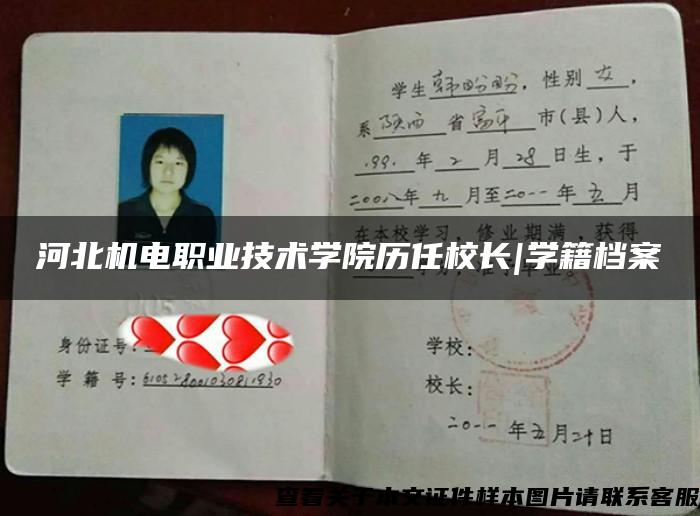 学生韩盼盼，性别女，
系陕西省富平市(县)人，
1991年2月28日生，于
二00八年九月至二0一一年五月
在本校学习，修业期满，获得
河北机电职业技术学院历任校长|学籍档案
身份证号:
学籍号:610528001030811930
学校:
校长:
二0一一年五月二十日
查看关于本文证件样本图片请联系客服